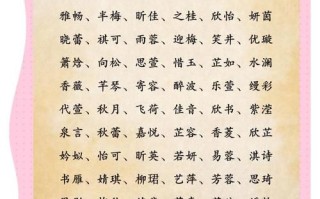 雅畅、芊梅、昕佳、之桂、欣怡、妍茵
晓蕾、祺可、雨蓉、迎梅、笑卉、优璇
萧焓、向松、思萱、惜玉、芷如、水澜
香薇、芊琴、寄容、醉波、乐萱、缦彩
代萱、秋月、飞荷、佳音、欣书、紫滢
泉言、秋蕾、嘉悦、芷容、香菱、欣芷
姈姒、怡可、昕英、若妍、易蓉、淇诗
书雁、婧琪、柳珺、艺萍、芳蓉、思琦